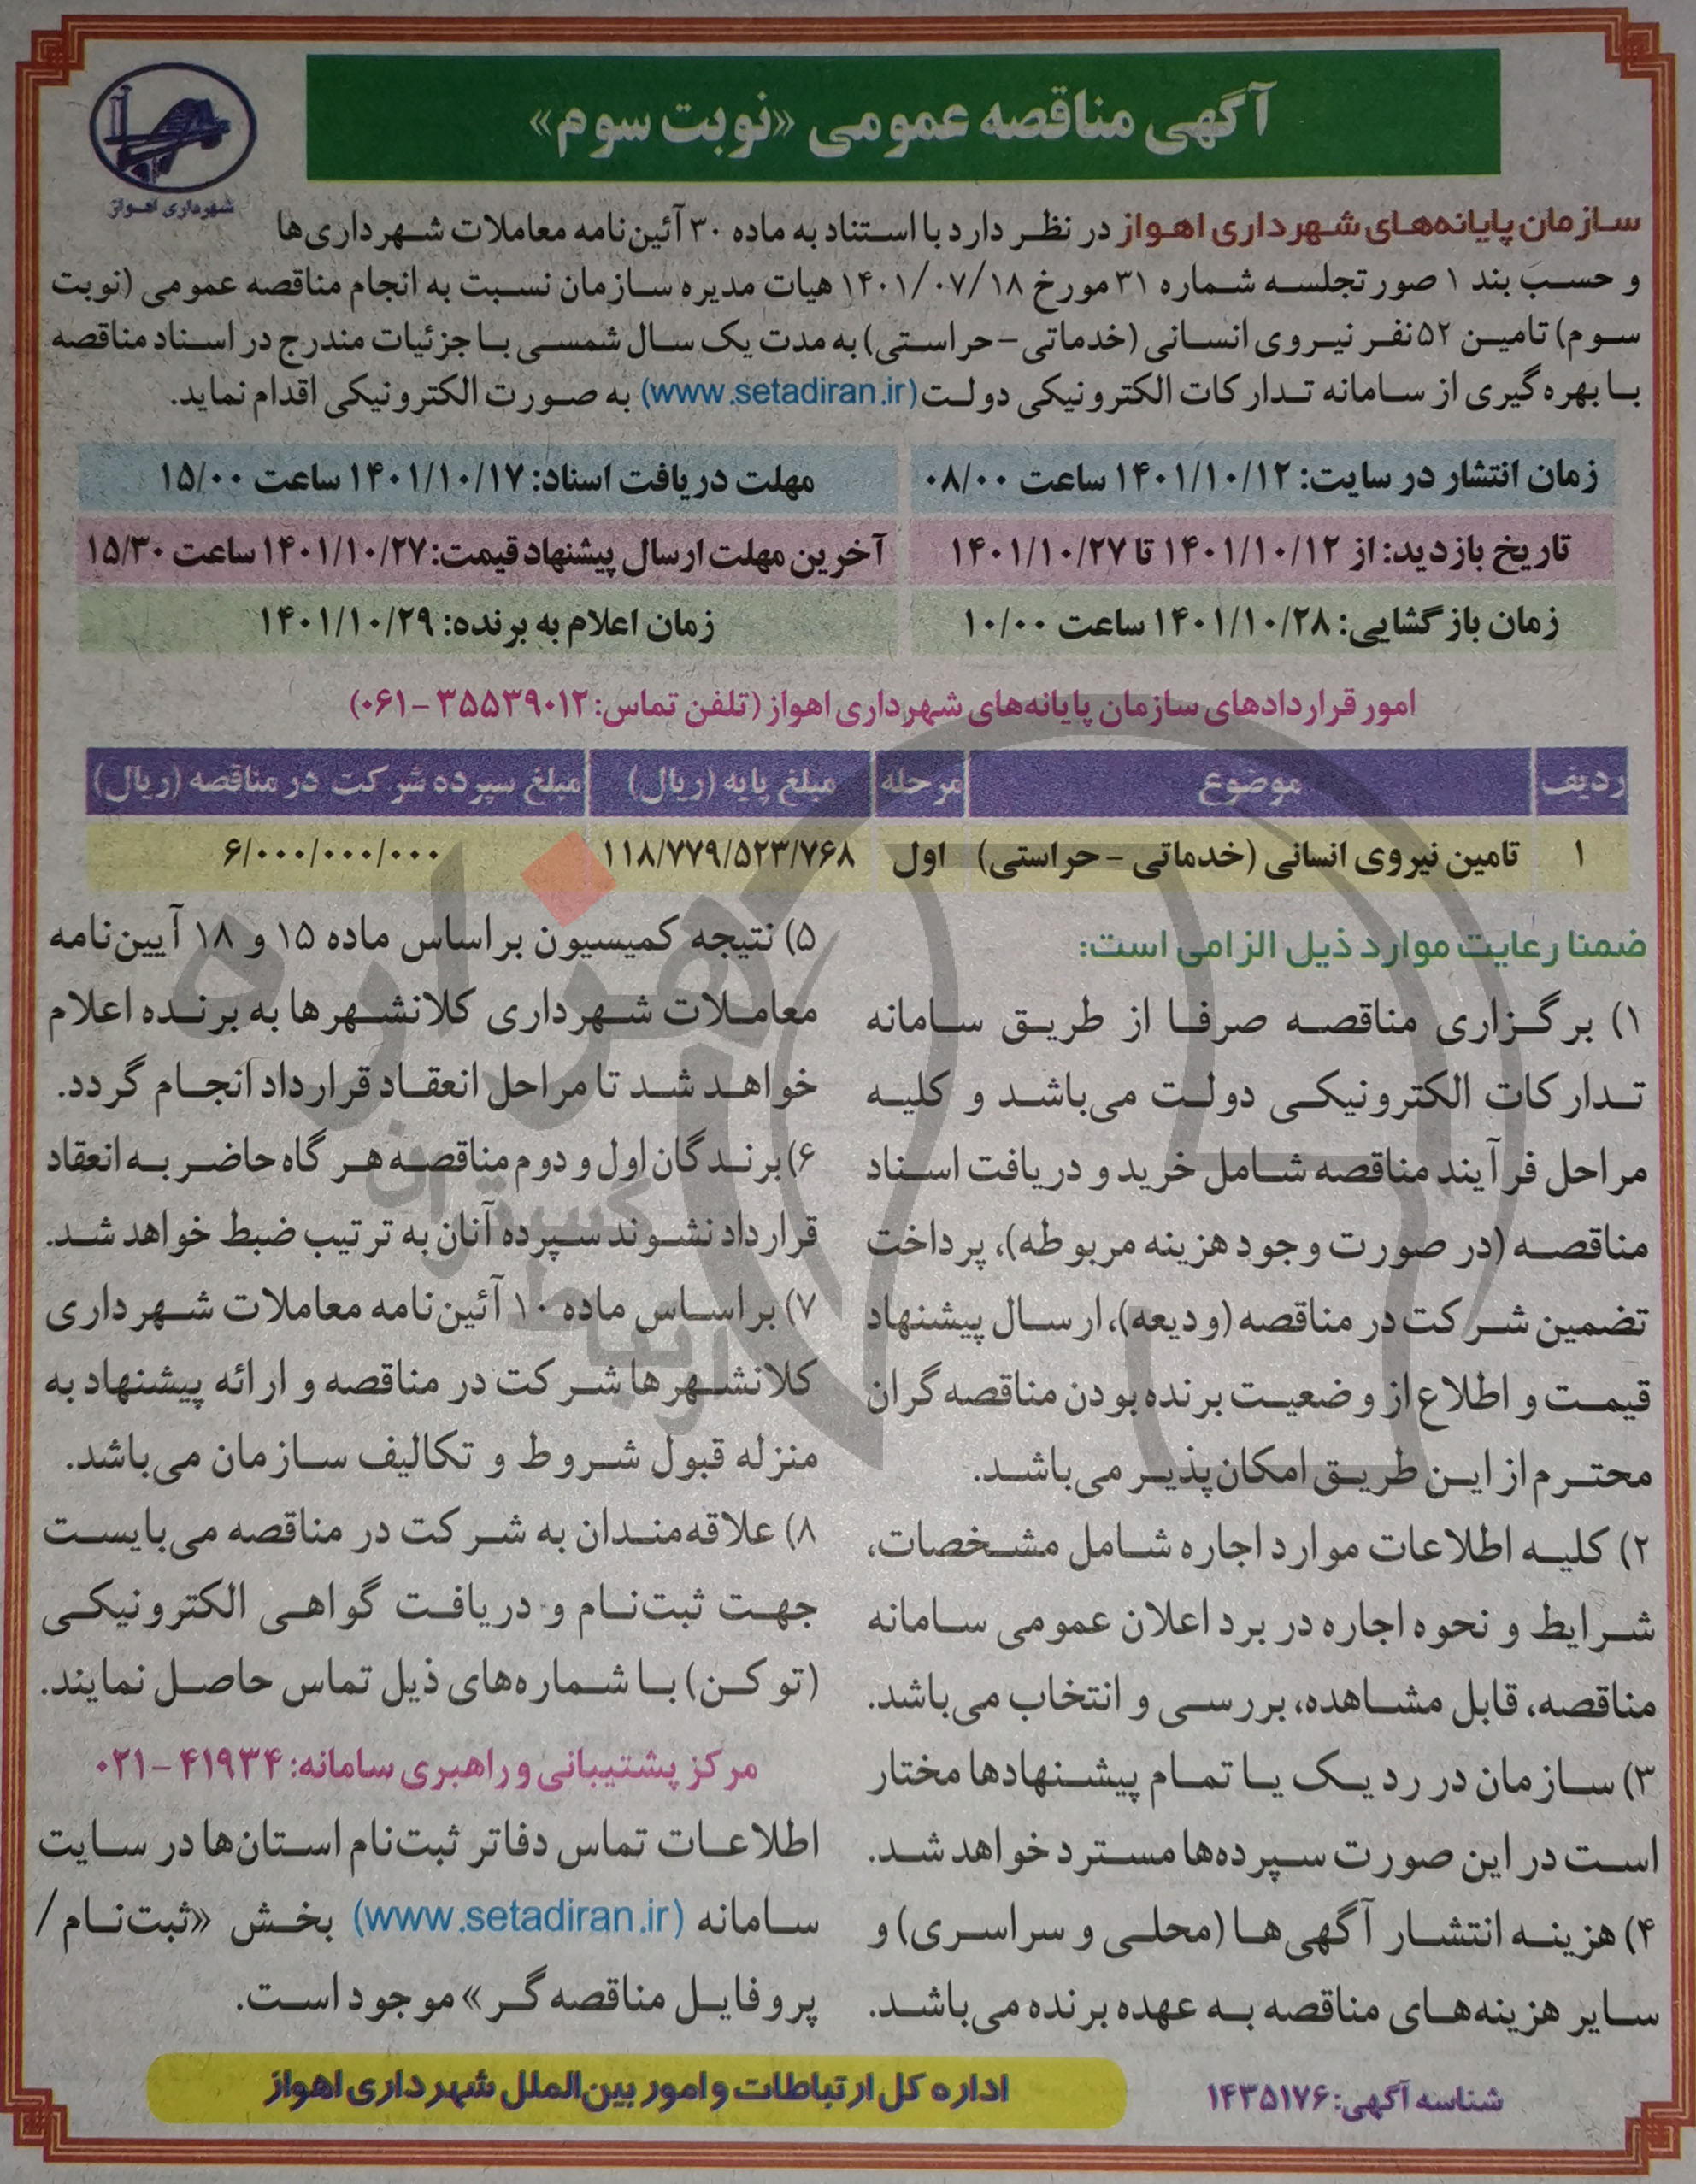 آگهی مناقصه عمومی «نوبت سوم»
شهرداری اهواز
سازمان پایانه‌های شهرداری اهواز در نظر دارد با استناد به ماده ۳۰ آئین‌نامه معاملات شهرداری‌ها
و حسب بند ۱ صورتجلسه شماره ۳۱ مورخ ۱۴۰۱/۰۷/۱۸ هیات مدیره سازمان نسبت به انجام مناقصه عمومی (نوبت
سوم) تامین ۵۲ نفر نیروی انسانی (خدماتی - حراستی) به مدت یک سال شمسی با جزئیات مندرج در اسناد مناقصه
با بهره‌گیری از سامانه تدارکات الکترونیکی دولت (www.setadiran.ir) به صورت الکترونیکی اقدام نماید.
زمان انتشار در سایت: ۱۴۰۱/۱۰/۱۲ ساعت ۰۸/۰۰
مهلت دریافت اسناد: ۱۴۰۱/۱۰/۱۷ ساعت ۱۵/۰۰
تاریخ بازدید: از ۱۴۰۱/۱۰/۱۲ تا ۱۴۰۱/۱۰/۲۷
آخرین مهلت ارسال پیشنهاد قیمت: ۱۴۰۱/۱۰/۲۷ ساعت ۱۵/۳۰
زمان بازگشایی: ۱۴۰۱/۱۰/۲۸ ساعت ۱۰/۰۰
زمان اعلام به برنده: ۱۴۰۱/۱۰/۲۹
امور قراردادهای سازمان پایانه‌های شهرداری اهواز (تلفن تماس: ۳۵۵۳۹۰۱۲ - ۰۶۱)
ردیف موضوع مرحله مبلغ پایه (ریال) مبلغ سپرده شرکت در مناقصه (ریال)
۱ تامین نیروی انسانی (خدماتی - حراستی) اول ۱۱۸/۷۷۹/۵۲۳/۷۶۸ ۶/۰۰۰/۰۰۰/۰۰۰
ضمنا رعایت موارد ذیل الزامی است:
۱) برگزاری مناقصه صرفا از طریق سامانه
تدارکات الکترونیکی دولت می‌باشد و کلیه
مراحل فرآیند مناقصه شامل خرید و دریافت اسناد
مناقصه (در صورت وجود هزینه مربوطه)، پرداخت
تضمین شرکت در مناقصه (ودیعه)، ارسال پیشنهاد
قیمت و اطلاع از وضعیت برنده بودن مناقصه گران
محترم از این طریق امکان‌پذیر می‌باشد.
۲) کلیه اطلاعات موارد اجاره شامل مشخصات،
شرایط و نحوه اجاره در برد اعلان عمومی سامانه
مناقصه، قابل مشاهده، بررسی و انتخاب می‌باشد.
۳) سازمان در رد یک یا تمام پیشنهادها مختار
است در این صورت سپرده‌ها مسترد خواهد شد.
۴) هزینه انتشار آگهی‌ها (محلی و سراسری) و
سایر هزینه‌های مناقصه به عهده برنده می‌باشد.
۵) نتیجه کمیسیون براساس ماده ۱۵ و ۱۸ آیین‌نامه
معاملات شهرداری کلانشهرها به برنده اعلام
خواهد شد تا مراحل انعقاد قرارداد انجام گردد.
۶) برندگان اول و دوم مناقصه هر گاه حاضر به انعقاد
قرارداد نشوند سپرده آنان به ترتیب ضبط خواهد شد.
۷) براساس ماده ۱۰ آئین‌نامه معاملات شهرداری
کلانشهرها شرکت در مناقصه و ارائه پیشنهاد به
منزله قبول شروط و تکالیف سازمان می‌باشد.
۸) علاقه‌مندان به شرکت در مناقصه می‌بایست
جهت ثبت‌نام و دریافت گواهی الکترونیکی
(توکن) با شماره‌های ذیل تماس حاصل نمایند.
مرکز پشتیبانی و راهبری سامانه: ۴۱۹۳۴ - ۰۲۱
اطلاعات تماس دفاتر ثبت‌نام استان‌ها در سایت
سامانه (www.setadiran.ir) بخش «ثبت‌نام /
پروفایل مناقصه گر» موجود است.
شناسه آگهی: ۱۴۳۵۱۷۶
اداره کل ارتباطات و امور بین‌الملل شهرداری اهواز